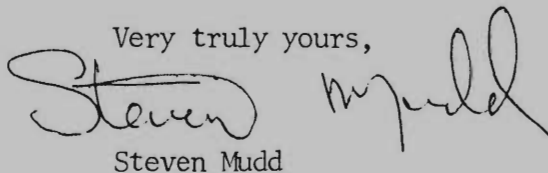 Very truly yours,
Steven Mudd
Steven Mudd